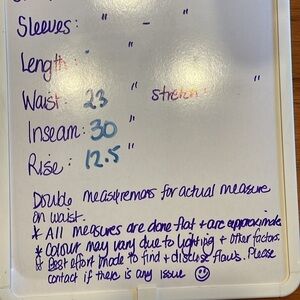 Sleeves: " - "
Length: "
Waist: 23 " stretch: "
Inseam: 30 "
Rise: 12.5 "
Double measuremens for actual measure
on waist.
* All measures are done flat + are approximate
* Colour may vary due to lighting + other factors.
* Best effort made to find + disclose flaws. Please
contact if there is any issue ☺